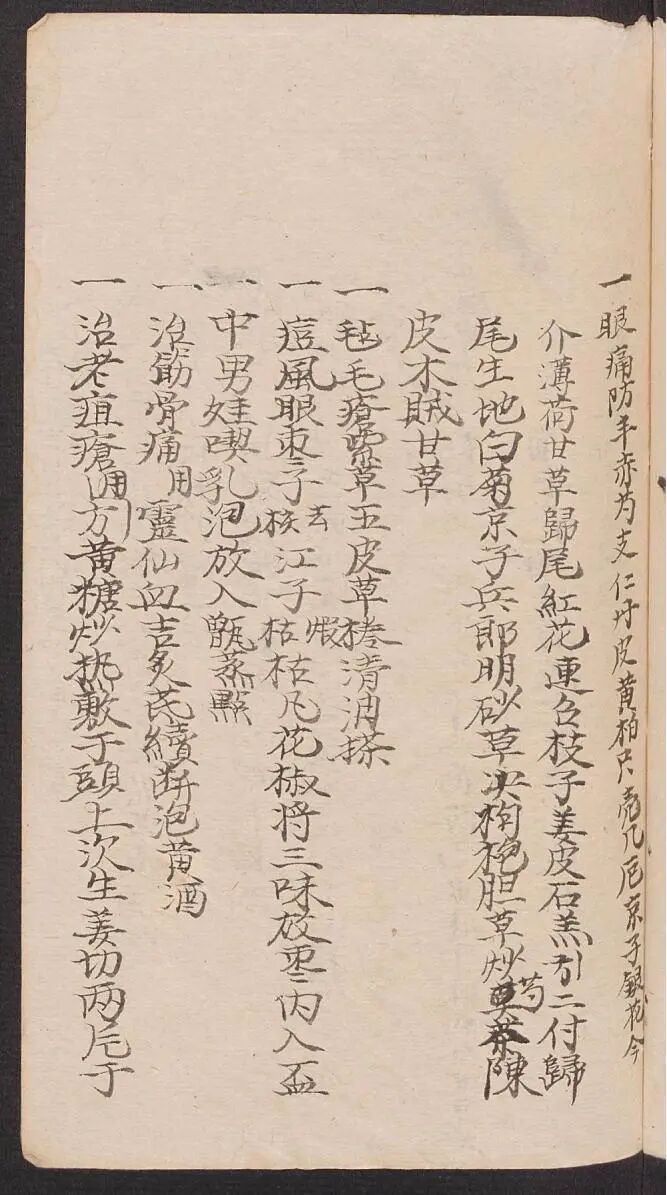 一眼痛防丰赤芍支仁丹皮黄柏只壳几厄京子銀花今
介薄荷甘草歸尾紅花連召枝子姜皮石羔引二付歸
尾生地白菊京子兵郎明砂草决枸杞胆草炒芍蔡陳
皮木賊甘草
一毡毛瘡草五皮草捲清油搽
一痘風眼枣子去核江子煆枯枯凡花椒将三味放枣内入盃
一中男娃喫乳泡放入甑蒸點
一治筋骨痛用靈仙血吉炙芪續断泡黄酒
一治老疽瘡用方黄糖炒热敷于頭上次生姜切两片于